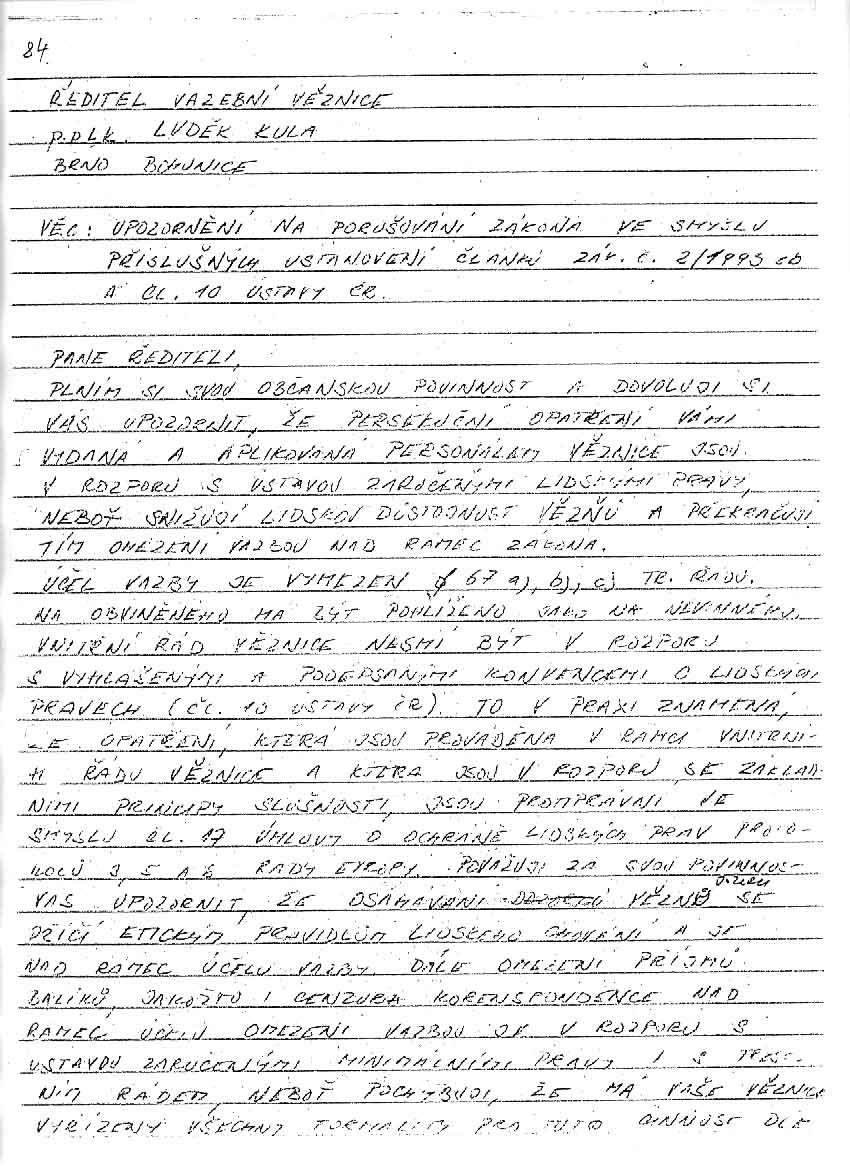 84.
ŘEDITEL VAZEBNÍ VĚZNICE
p.p.l.k. LUDĚK KULA
BRNO BOHUNICE
VĚC: UPOZORNĚNÍ NA PORUŠOVÁNÍ ZÁKONA VE SMYSLU
PŘÍSLUŠNÝCH USTANOVENÍ ČLÁNKŮ ZÁK. Č. 2/1993 sb
A ČL. 10 ÚSTAVY ČR.
PANE ŘEDITELI,
PLNÍM SI SVOU OBČANSKOU POVINNOST A DOVOLUJI SI
VÁS UPOZORNIT, ŽE PERSEKUČNÍ OPATŘENÍ VÁMI
VYDANÁ A APLIKOVANÁ PERSONÁLEM VĚZNICE JSOU
V ROZPORU S ÚSTAVOU ZARUČENÝMI LIDSKÝMI PRÁVY,
NEBOŤ SNIŽUJÍ LIDSKOU DŮSTOJNOST VĚZŇŮ A PŘEKRAČUJÍ
TÍM OMEZENÍ VAZBOU NAD RÁMEC ZÁKONA.
ÚČEL VAZBY JE VYMEZEN § 67 a), b), c) TR. ŘÁDU.
NA OBVINĚNÉHO MÁ BÝT POHLÍŽENO JAKO NA NEVINNÉHO.
VNITŘNÍ ŘÁD VĚZNICE NESMÍ BÝT V ROZPORU
S VYHLÁŠENÝMI A PODEPSANÝMI KONVENCEMI O LIDSKÝCH
PRÁVECH (ČL. 10 ÚSTAVY ČR). TO V PRAXI ZNAMENÁ,
ŽE OPATŘENÍ, KTERÁ JSOU PROVÁDĚNA V RÁMCI VNITŘNÍ-
H ŘÁDU VĚZNICE A KTERÁ JSOU V ROZPORU SE ZÁKLAD-
NÍMI PRINCIPY SLUŠNOSTI, JSOU PROTIPRÁVNÍ VE
SMYSLU ČL. 17 ÚMLUVY O OCHRANĚ LIDSKÝCH PRÁV PROTO-
KOLŮ 3, 5 A 8 RADY EVROPY. POVAŽUJI ZA SVOU POVINNOS-
VÁS UPOZORNIT, ŽE OSAHÁVÁNÍ VĚZNĚ SE
PŘÍČÍ ETICKÝM PRAVIDLŮM LIDSKÉHO CHOVÁNÍ A JE
NAD RÁMEC ÚČELU VAZBY. DÁLE OMEZENÍ PŘÍJMŮ
BALÍKŮ, JAKOŽTO I CENZURA KORENSPONDENCE NAD
RÁMEC ÚČELU OMEZENÍ VAZBOU JE V ROZPORU S
ÚSTAVOU ZARUČENÝMI MINIMÁLNÍMI PRÁVY I S TREST-
NÍM ŘÁDEM, NEBOŤ POCHYBUJI, ŽE MÁ VAŠE VĚZNICE
VYŘÍZENY VŠECHNY FORMALITY PRO TUTO ČINNOST DLE